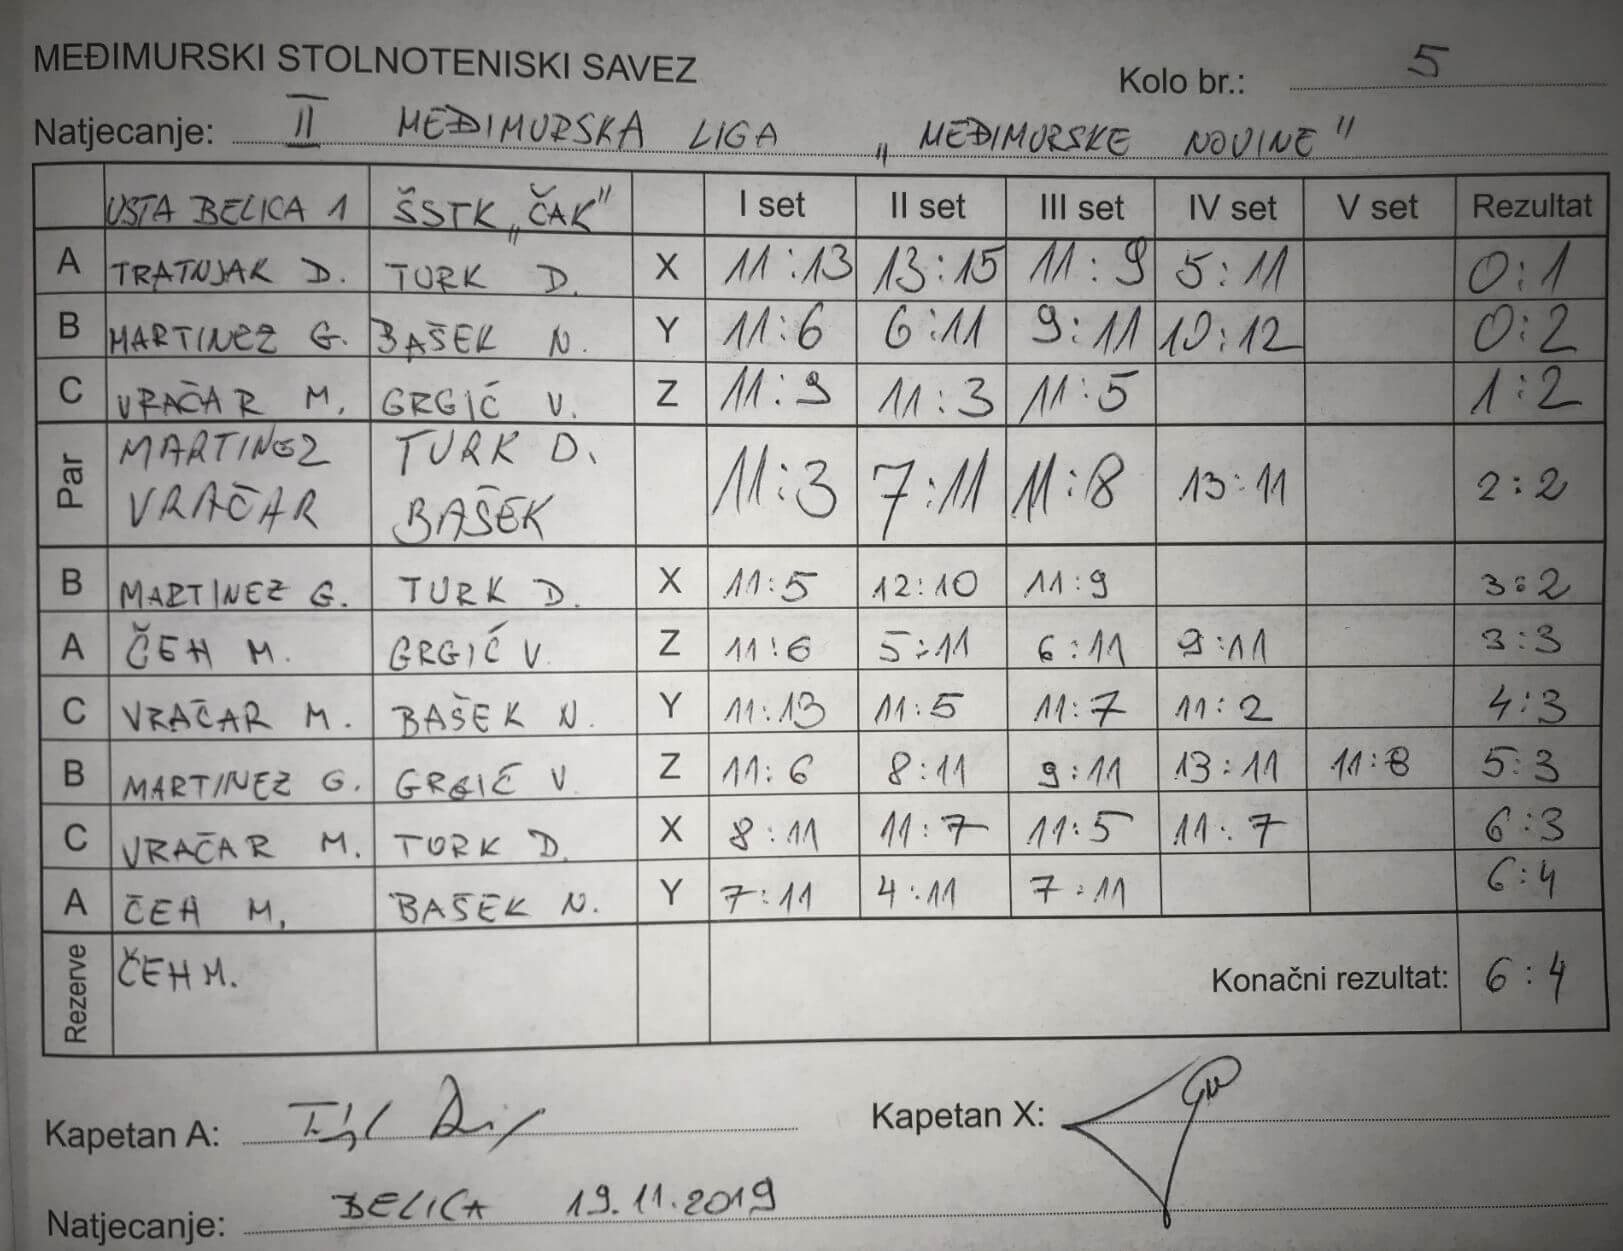 MEĐIMURSKI STOLNOTENISKI SAVEZ
Kolo br.: 5
Natjecanje: II MEĐIMURSKA LIGA „MEĐIMURSKE NOVINE"
USTA BELICA 1 ŠSTK „ČAK" I set II set III set IV set V set Rezultat
A TRATNJAK D. TURK D. X 11:13 13:15 11:9 5:11 0:1
B MARTINEZ G. BAŠEK N. Y 11:6 6:11 9:11 10:12 0:2
C VRAČAR M. GRGIĆ V. Z 11:9 11:3 11:5 1:2
Par MARTINEZ VRAČAR TURK D. BAŠEK 11:3 7:11 11:8 13:11 2:2
B MARTINEZ G. TURK D. X 11:5 12:10 11:9 3:2
A ČEH M. GRGIĆ V. Z 11:6 5:11 6:11 9:11 3:3
C VRAČAR M. BAŠEK N. Y 11:13 11:5 11:7 11:2 4:3
B MARTINEZ G. GRGIĆ V. Z 11:6 8:11 9:11 13:11 11:8 5:3
C VRAČAR M. TURK D. X 8:11 11:7 11:5 11:7 6:3
A ČEH M. BAŠEK N. Y 7:11 4:11 7:11 6:4
Rezerve ČEH M. Konačni rezultat: 6:4
Kapetan A: Kapetan X:
Natjecanje: BELICA 19.11.2019